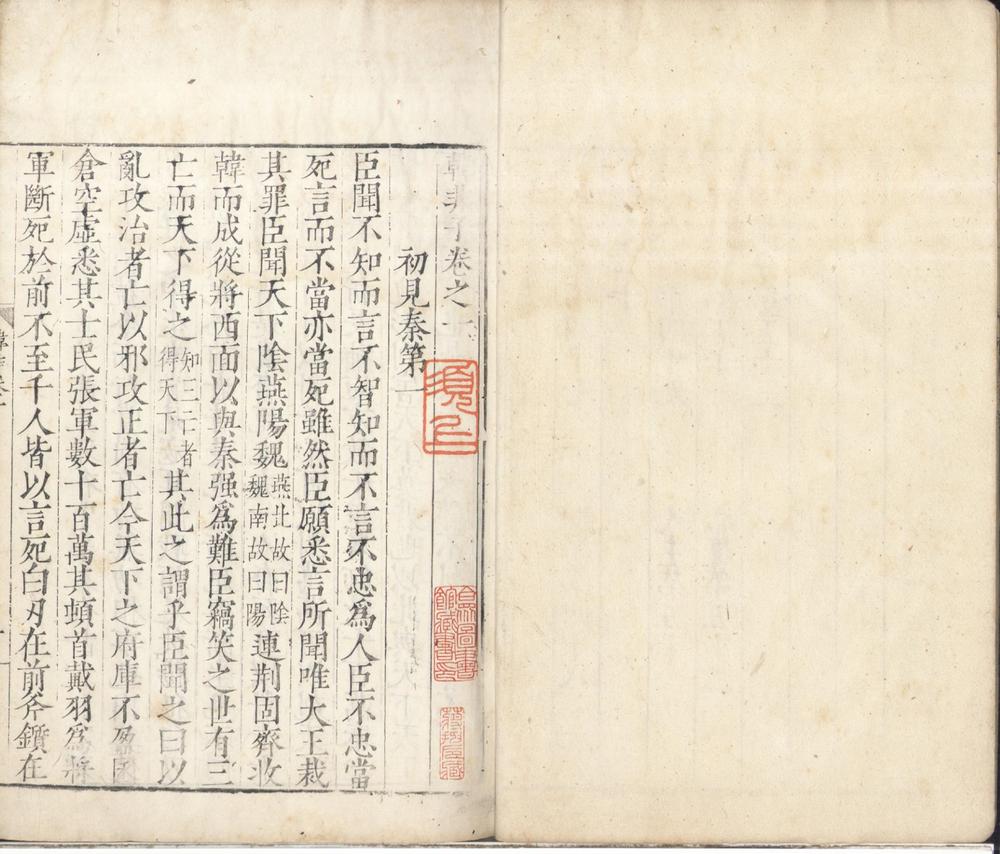 韓非子卷之一
初見秦第一
臣聞不知而言不智知而不言不忠為人臣不忠當
死言而不當亦當死雖然臣願悉言所聞唯大王裁
其罪臣聞天下陰燕陽魏燕北故曰陰魏南故曰陽連荆固齊收
韓而成從將西面以與秦强為難臣竊笑之世有三
亡而天下得之知三亡者得天下其此之謂乎臣聞之曰以
亂攻治者亡以邪攻正者亡今天下之府庫不盈囷
倉空虛悉其士民張軍數十百萬其頓首戴羽為將
軍斷死於前不至千人皆以言死白刃在前斧鑕在